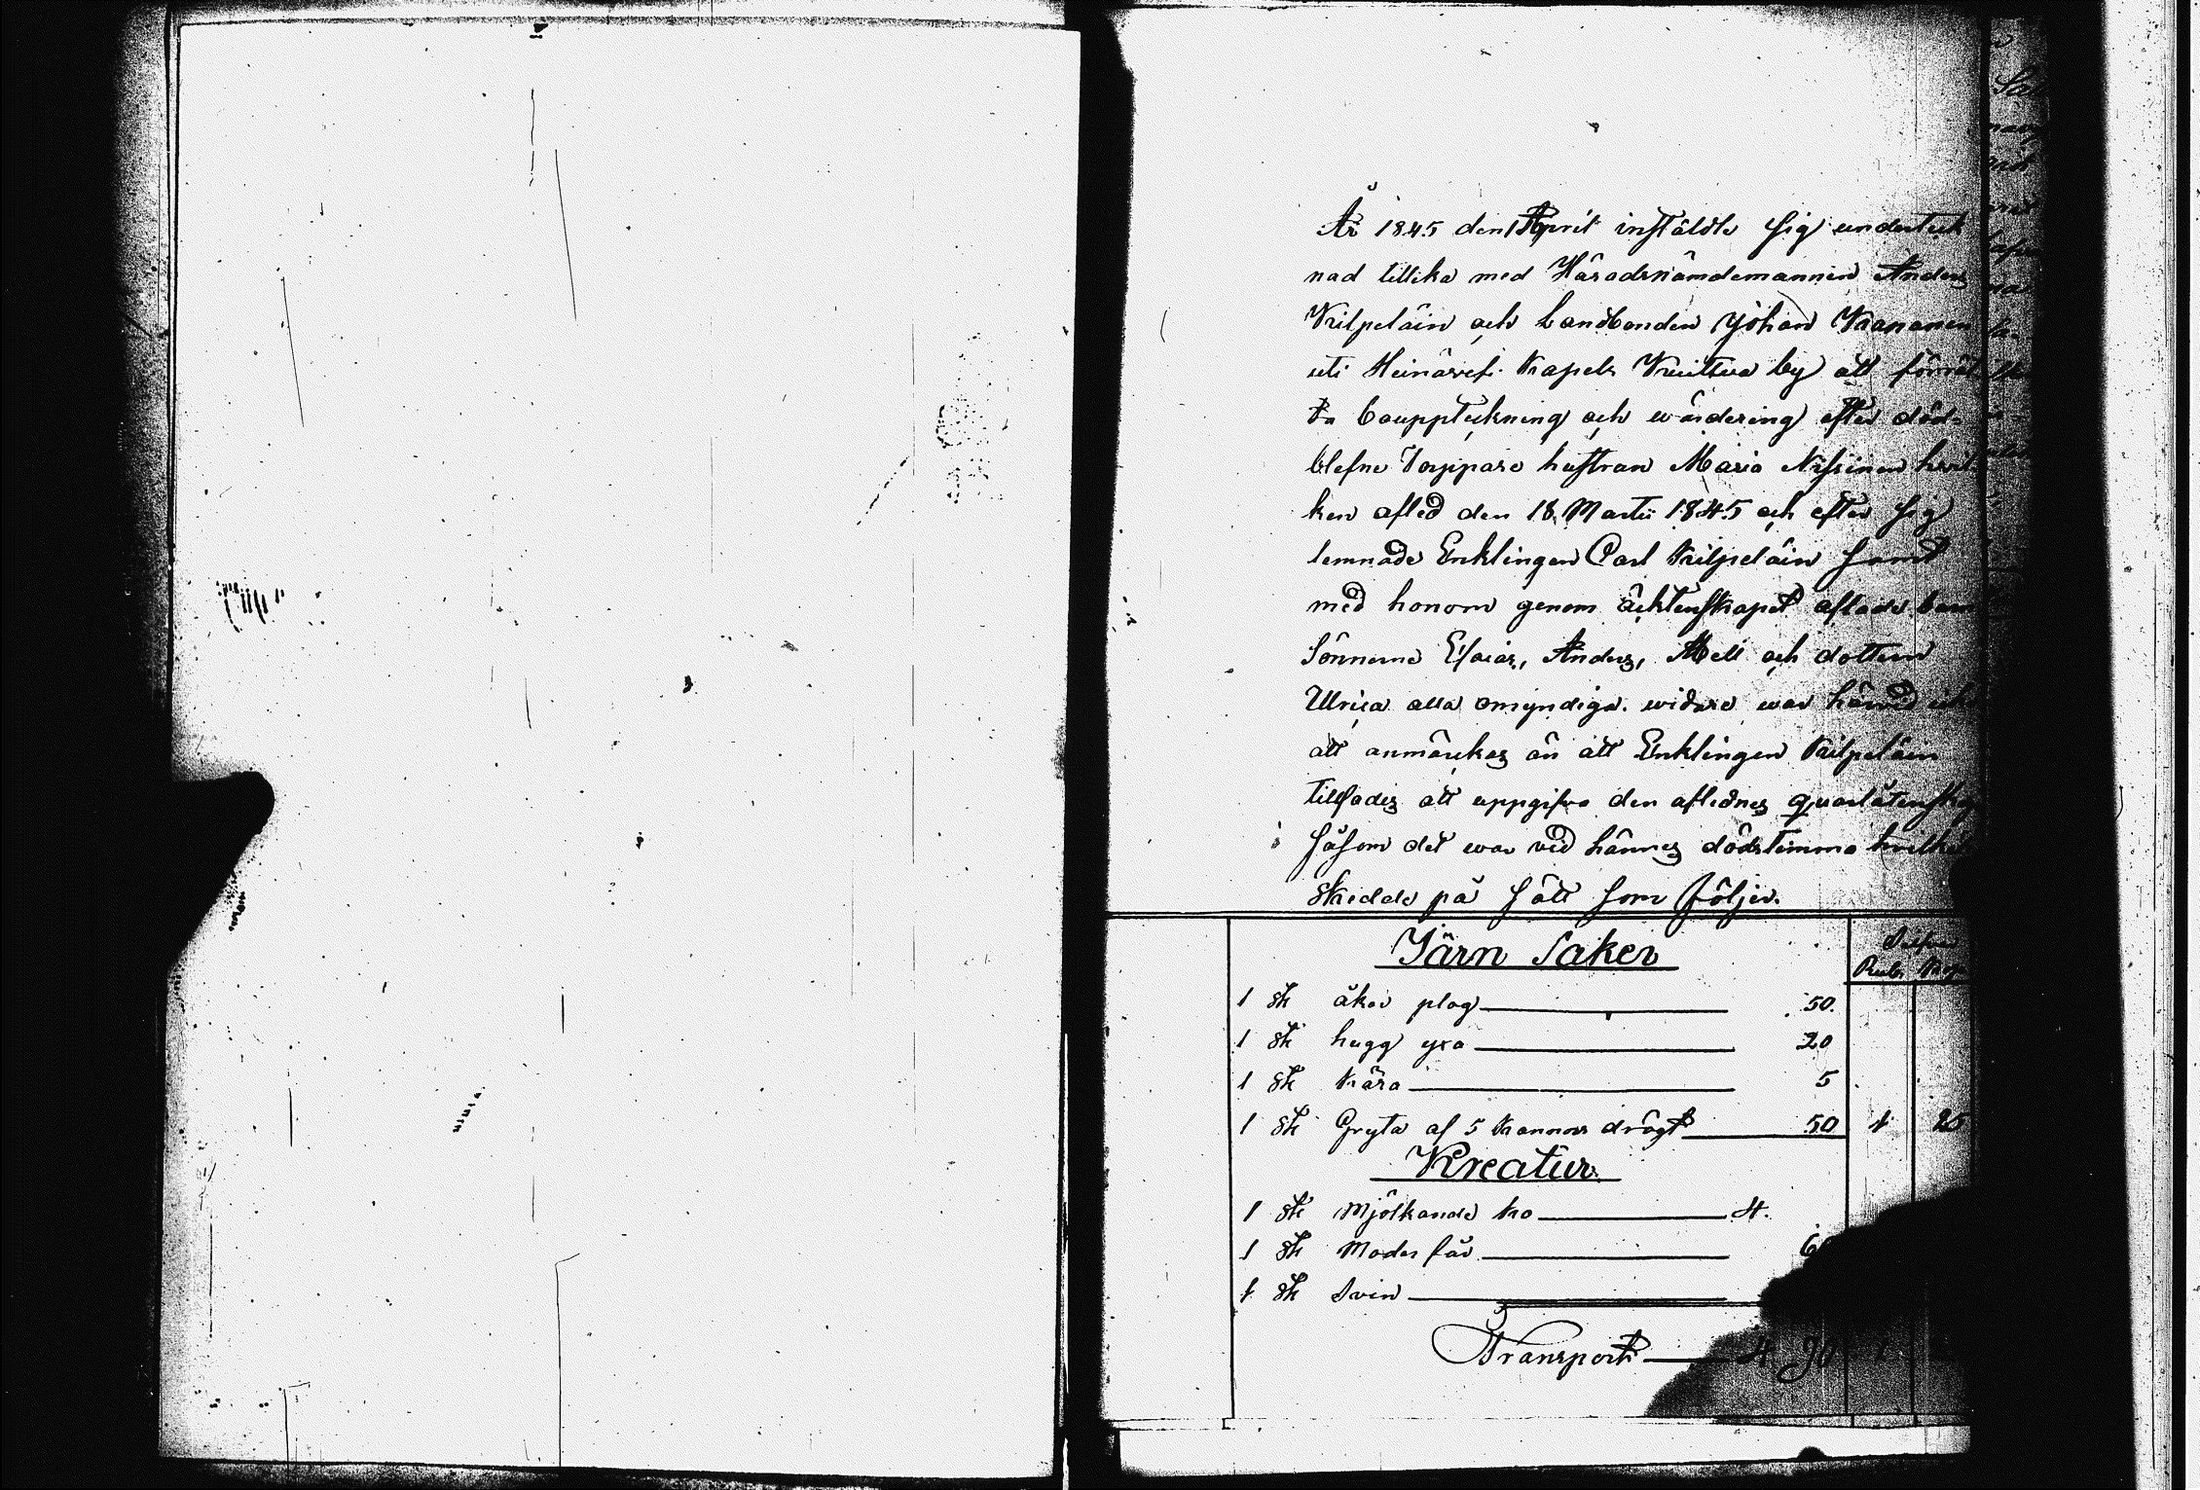 År 1845 den 1 April instäldte sig underteck
nad tillika med Häradsnämdemannen Anders
Kilpeläin och Landbonden Johan Kananen
uti Heinävesi Kapels Kuittua by att förrät
ta bouppteckning och wärdering efter död-
blefne Torppare hustran Maria Nissinen hvil
ken afled den 18 Martii 1845 och efter sig
lemnade Enklingen Carl Kilpeläin samt
med honom genom ächtenskapet aflade barn
Sönnerne Esaias, Anders, Mell och dottern
Ulrica alla omyndiga. widare war härvid icke
att anmärkas än att Enklingen Kilpeläin
tillsades att uppgifva den aflednes qvarlåtenskap
såsom det war vid hännes dödstimma hvilket
skedde på sätt som följer.
Järn Saker
Silfver
Rub. Kop
1 st åker plog 50.
1 st hugg yxa 20
1 st Kära 5
1 st Gryta af 5 Kannors drägt 50 1 25
Kreatur
1 st Mjölkande ko 4.
1 st Moder får
1 st Svin
Transport 4 90 1